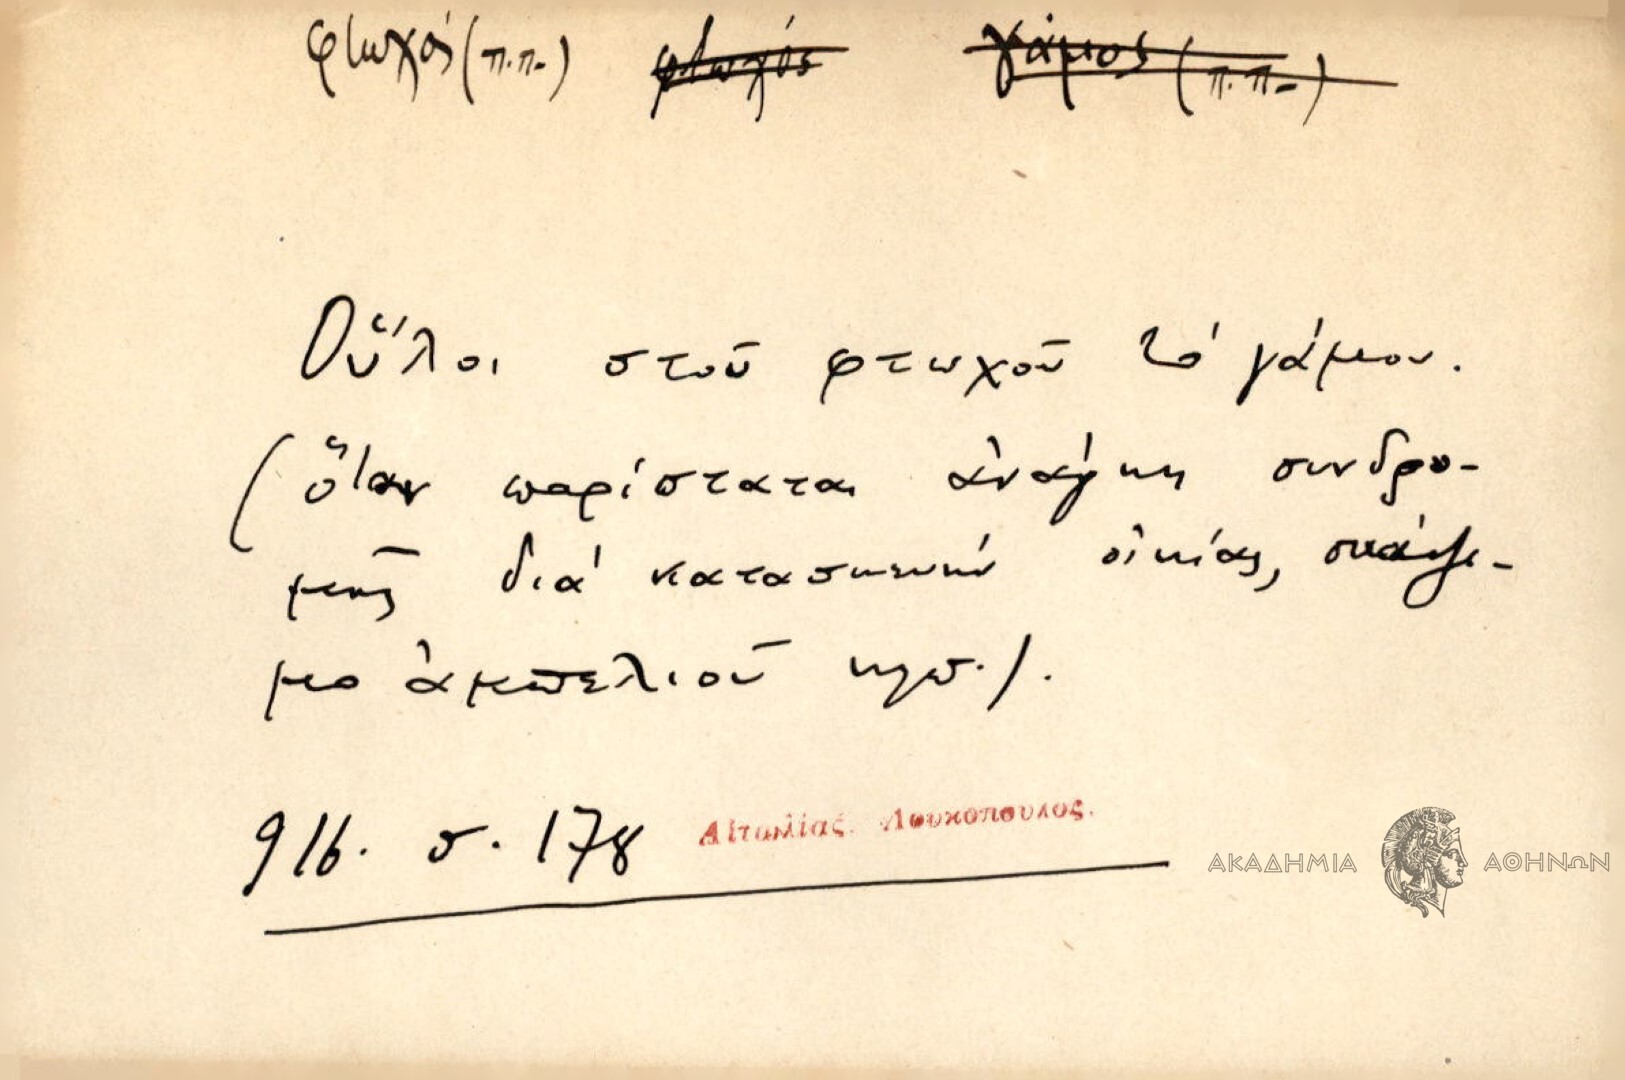 φτωχός (π.π.) φτωχός γάμος (π.π.)
Οὕλοι στοῦ φτωχοῦ τὸ γάμον.
(ὅταν παρίσταται ἀνάγκη συνδρο-
μῆς διὰ κατασκευὴν οἰκίας, σκάψι-
μο ἀμπελιοῦ κλπ.).
916. σ. 178 Αἰτωλίας. Λουκόπουλος.
ΑΚΑΔΗΜΙΑ ΑΘΗΝΩΝ